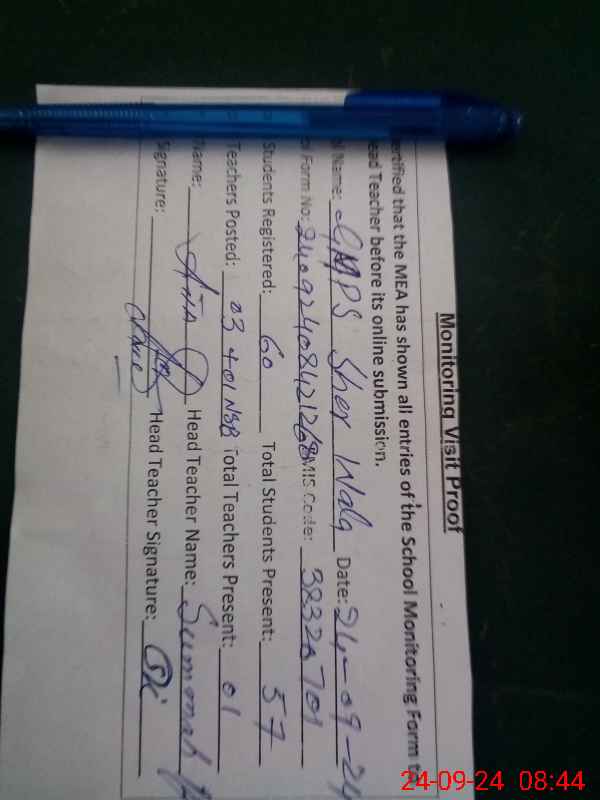 Monitoring Visit Proof
ertified that the MEA has shown all entries of the School Monitoring Form to
ead Teacher before its online submission.
ol Name: GMPS Sher Wala Date: 24-09-24
ol Form No: MIS Code: 38320701
Students Registered: 60 Total Students Present: 57
Teachers Posted: 03 + 01 NSB Total Teachers Present: 01
Name: Head Teacher Name:
Signature: Head Teacher Signature:
24-09-24 08:44